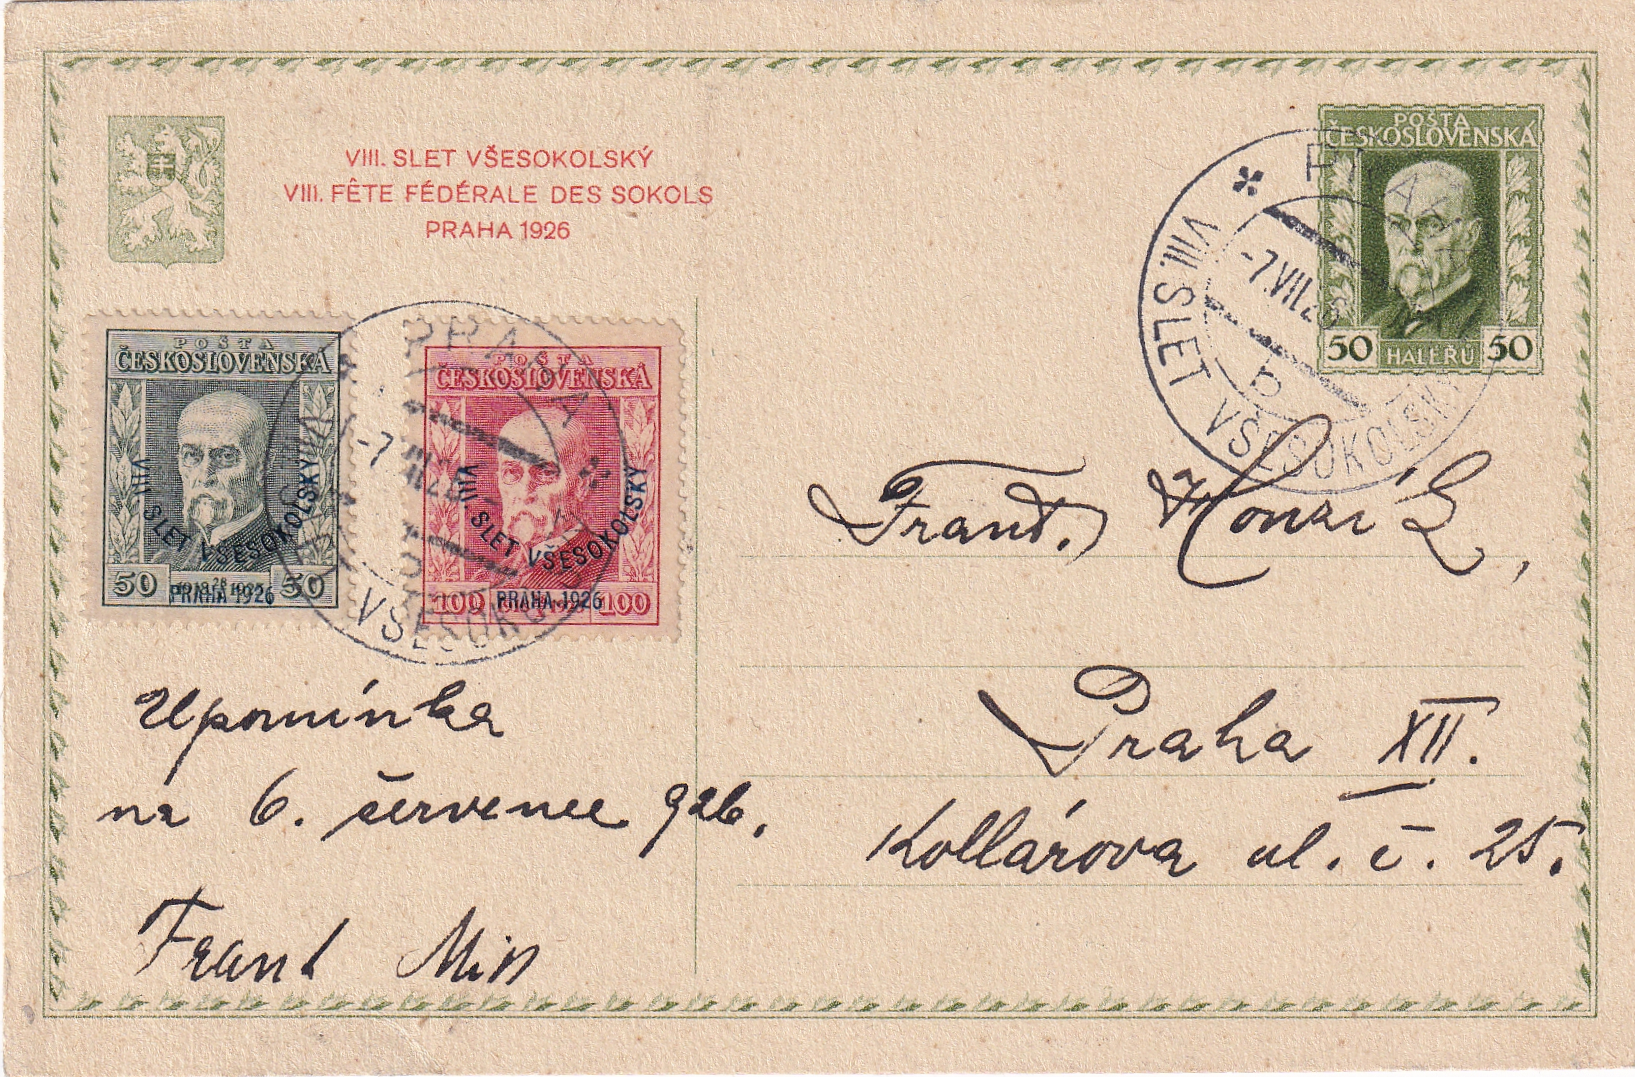 VIII. SLET VŠESOKOLSKÝ
VIII. FÊTE FÉDÉRALE DES SOKOLS
PRAHA 1926
POŠTA
ČESKOSLOVENSKÁ
50 HALÉŘŮ 50
PRAHA
-7.VII.26
b
VIII. SLET VŠESOKOLSKÝ
POŠTA
ČESKOSLOVENSKÁ
VIII. SLET VŠESOKOLSKÝ
50 PRAHA 1926 50
POŠTA
ČESKOSLOVENSKÁ
VIII. SLET VŠESOKOLSKÝ
100 PRAHA 1926 100
PRAHA
-7.VII.26
VŠESOKOL
Frant.
Praha XII.
Kollárova ul. č. 25.
Upomínka
na 6. července 926.
Frant